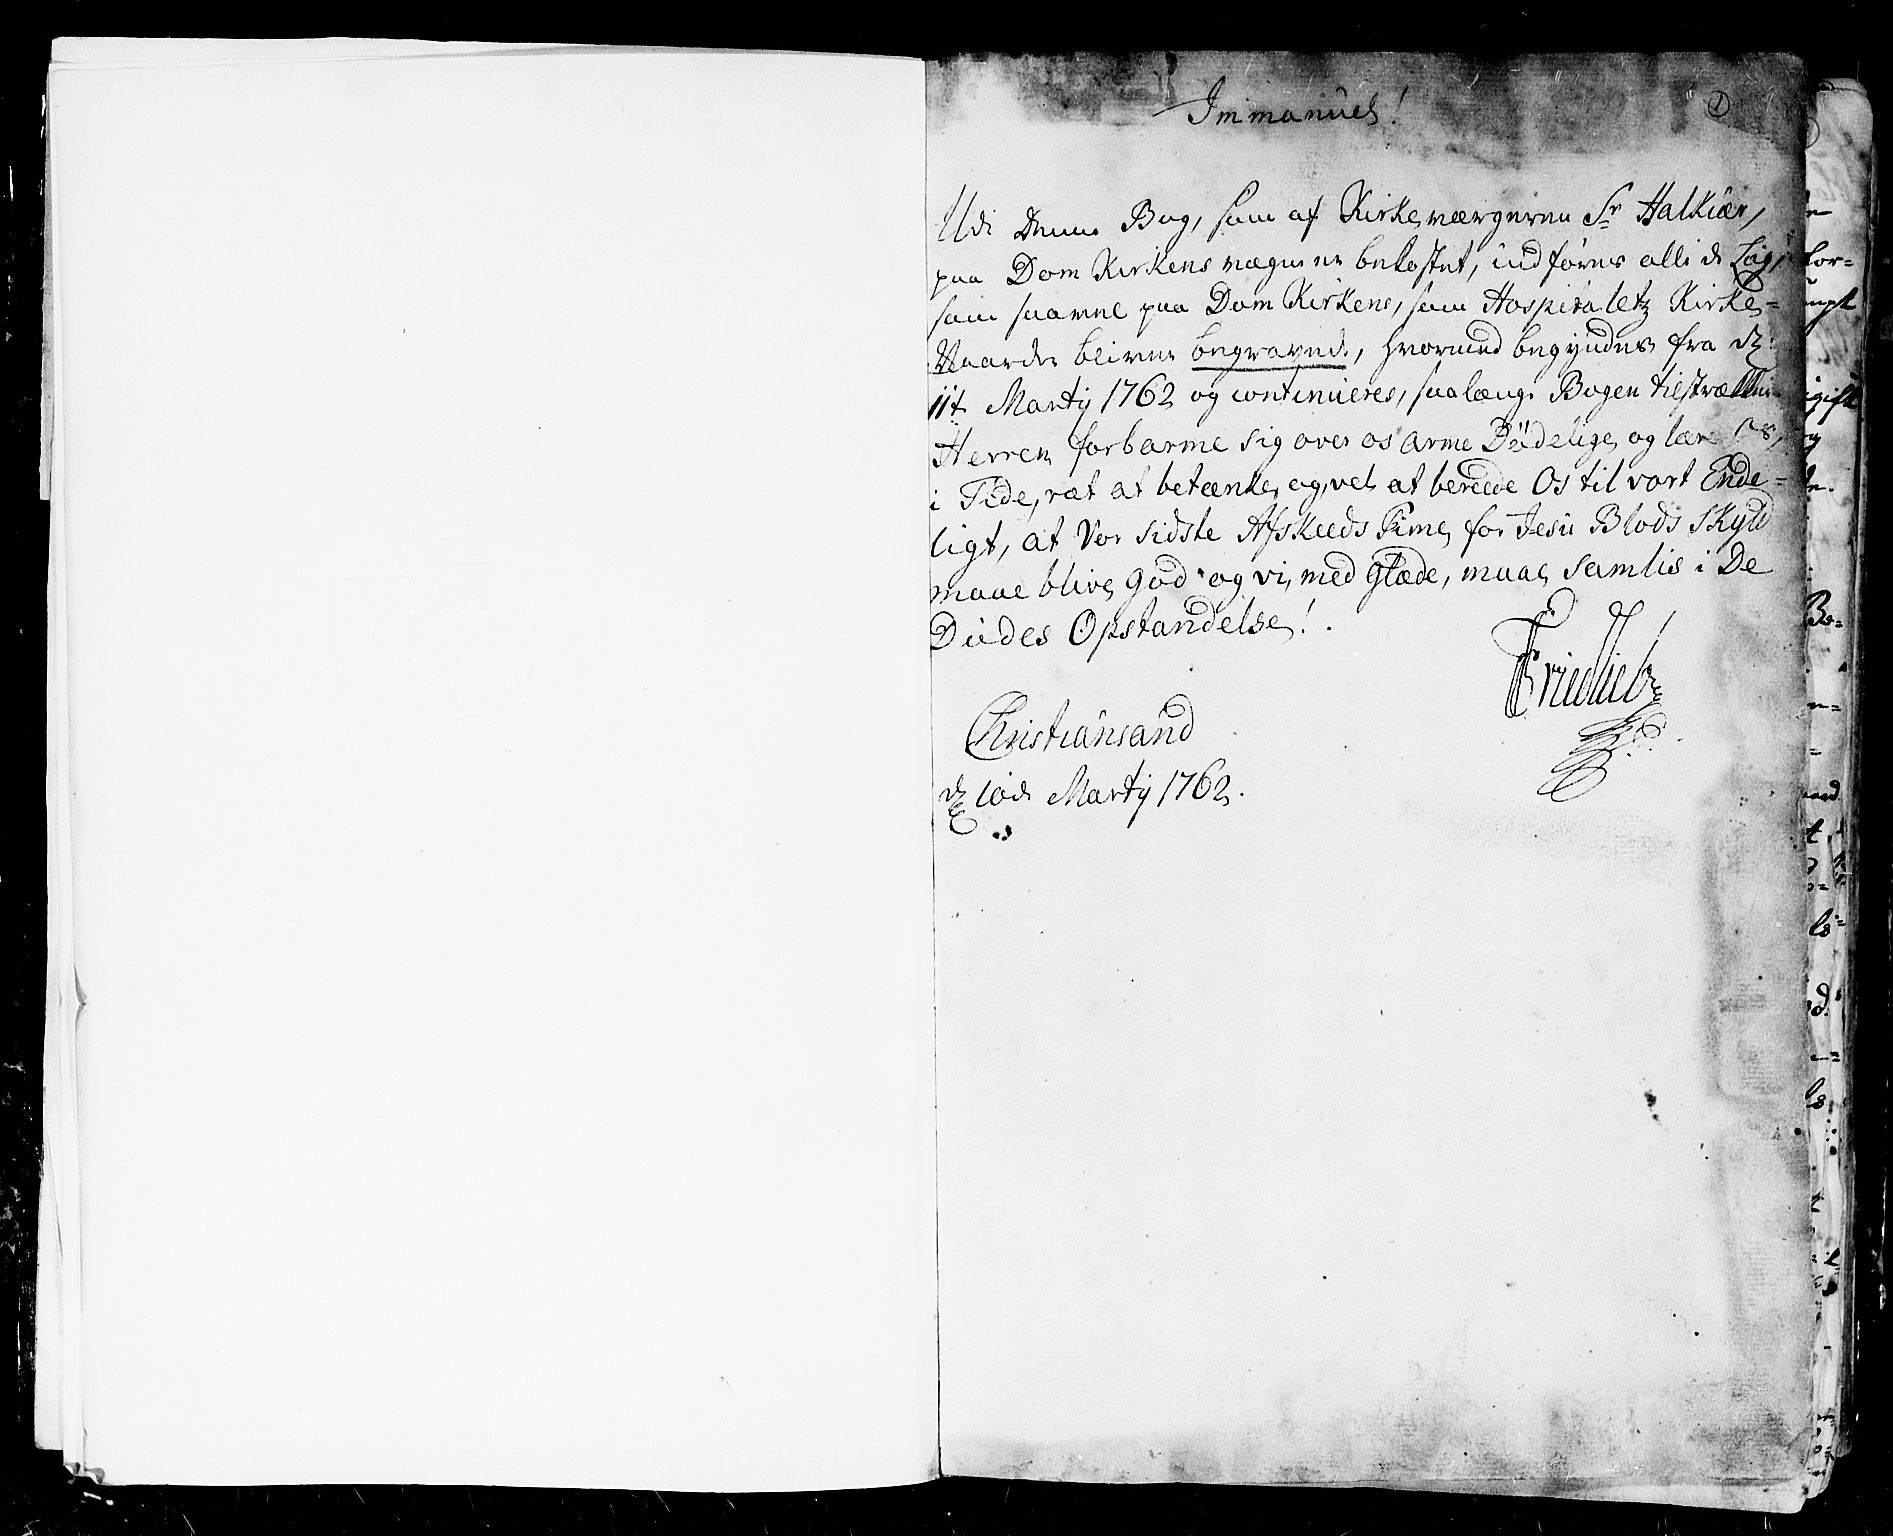 Immanuel!
1
Udi Denne Bog, som af Kirkeværgeren Sr Halkiær,
paa Dom Kirkens vegne er bekostet, indføres alle de Liig,
som saavel paa Dom Kirkens, som Hospitaletz Kirke=
Gaarder bliver begravede, hvormed begyndes fra d:
11te Martij 1762 og continueres, saalænge Bogen tilstrækker.
Herren forbarme sig over os arme Dødelige og lære os,
i Tide, ræt at betænke, og vel at bereede Os til vort Ende=
ligt, at Vor sidste Afskeeds Time, for Jesu Blods Skyld
maae blive god og vi, med Glæde, maae samlis i De
Dødes Opstandelse!
Christiansand
d 10de Martij 1762.
Friedlieb